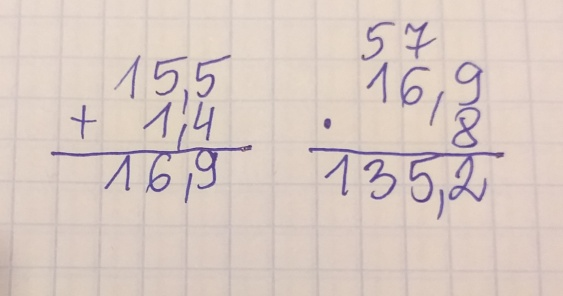 15,5
+ 1,4
16,9
57
16,9
· 8
135,2